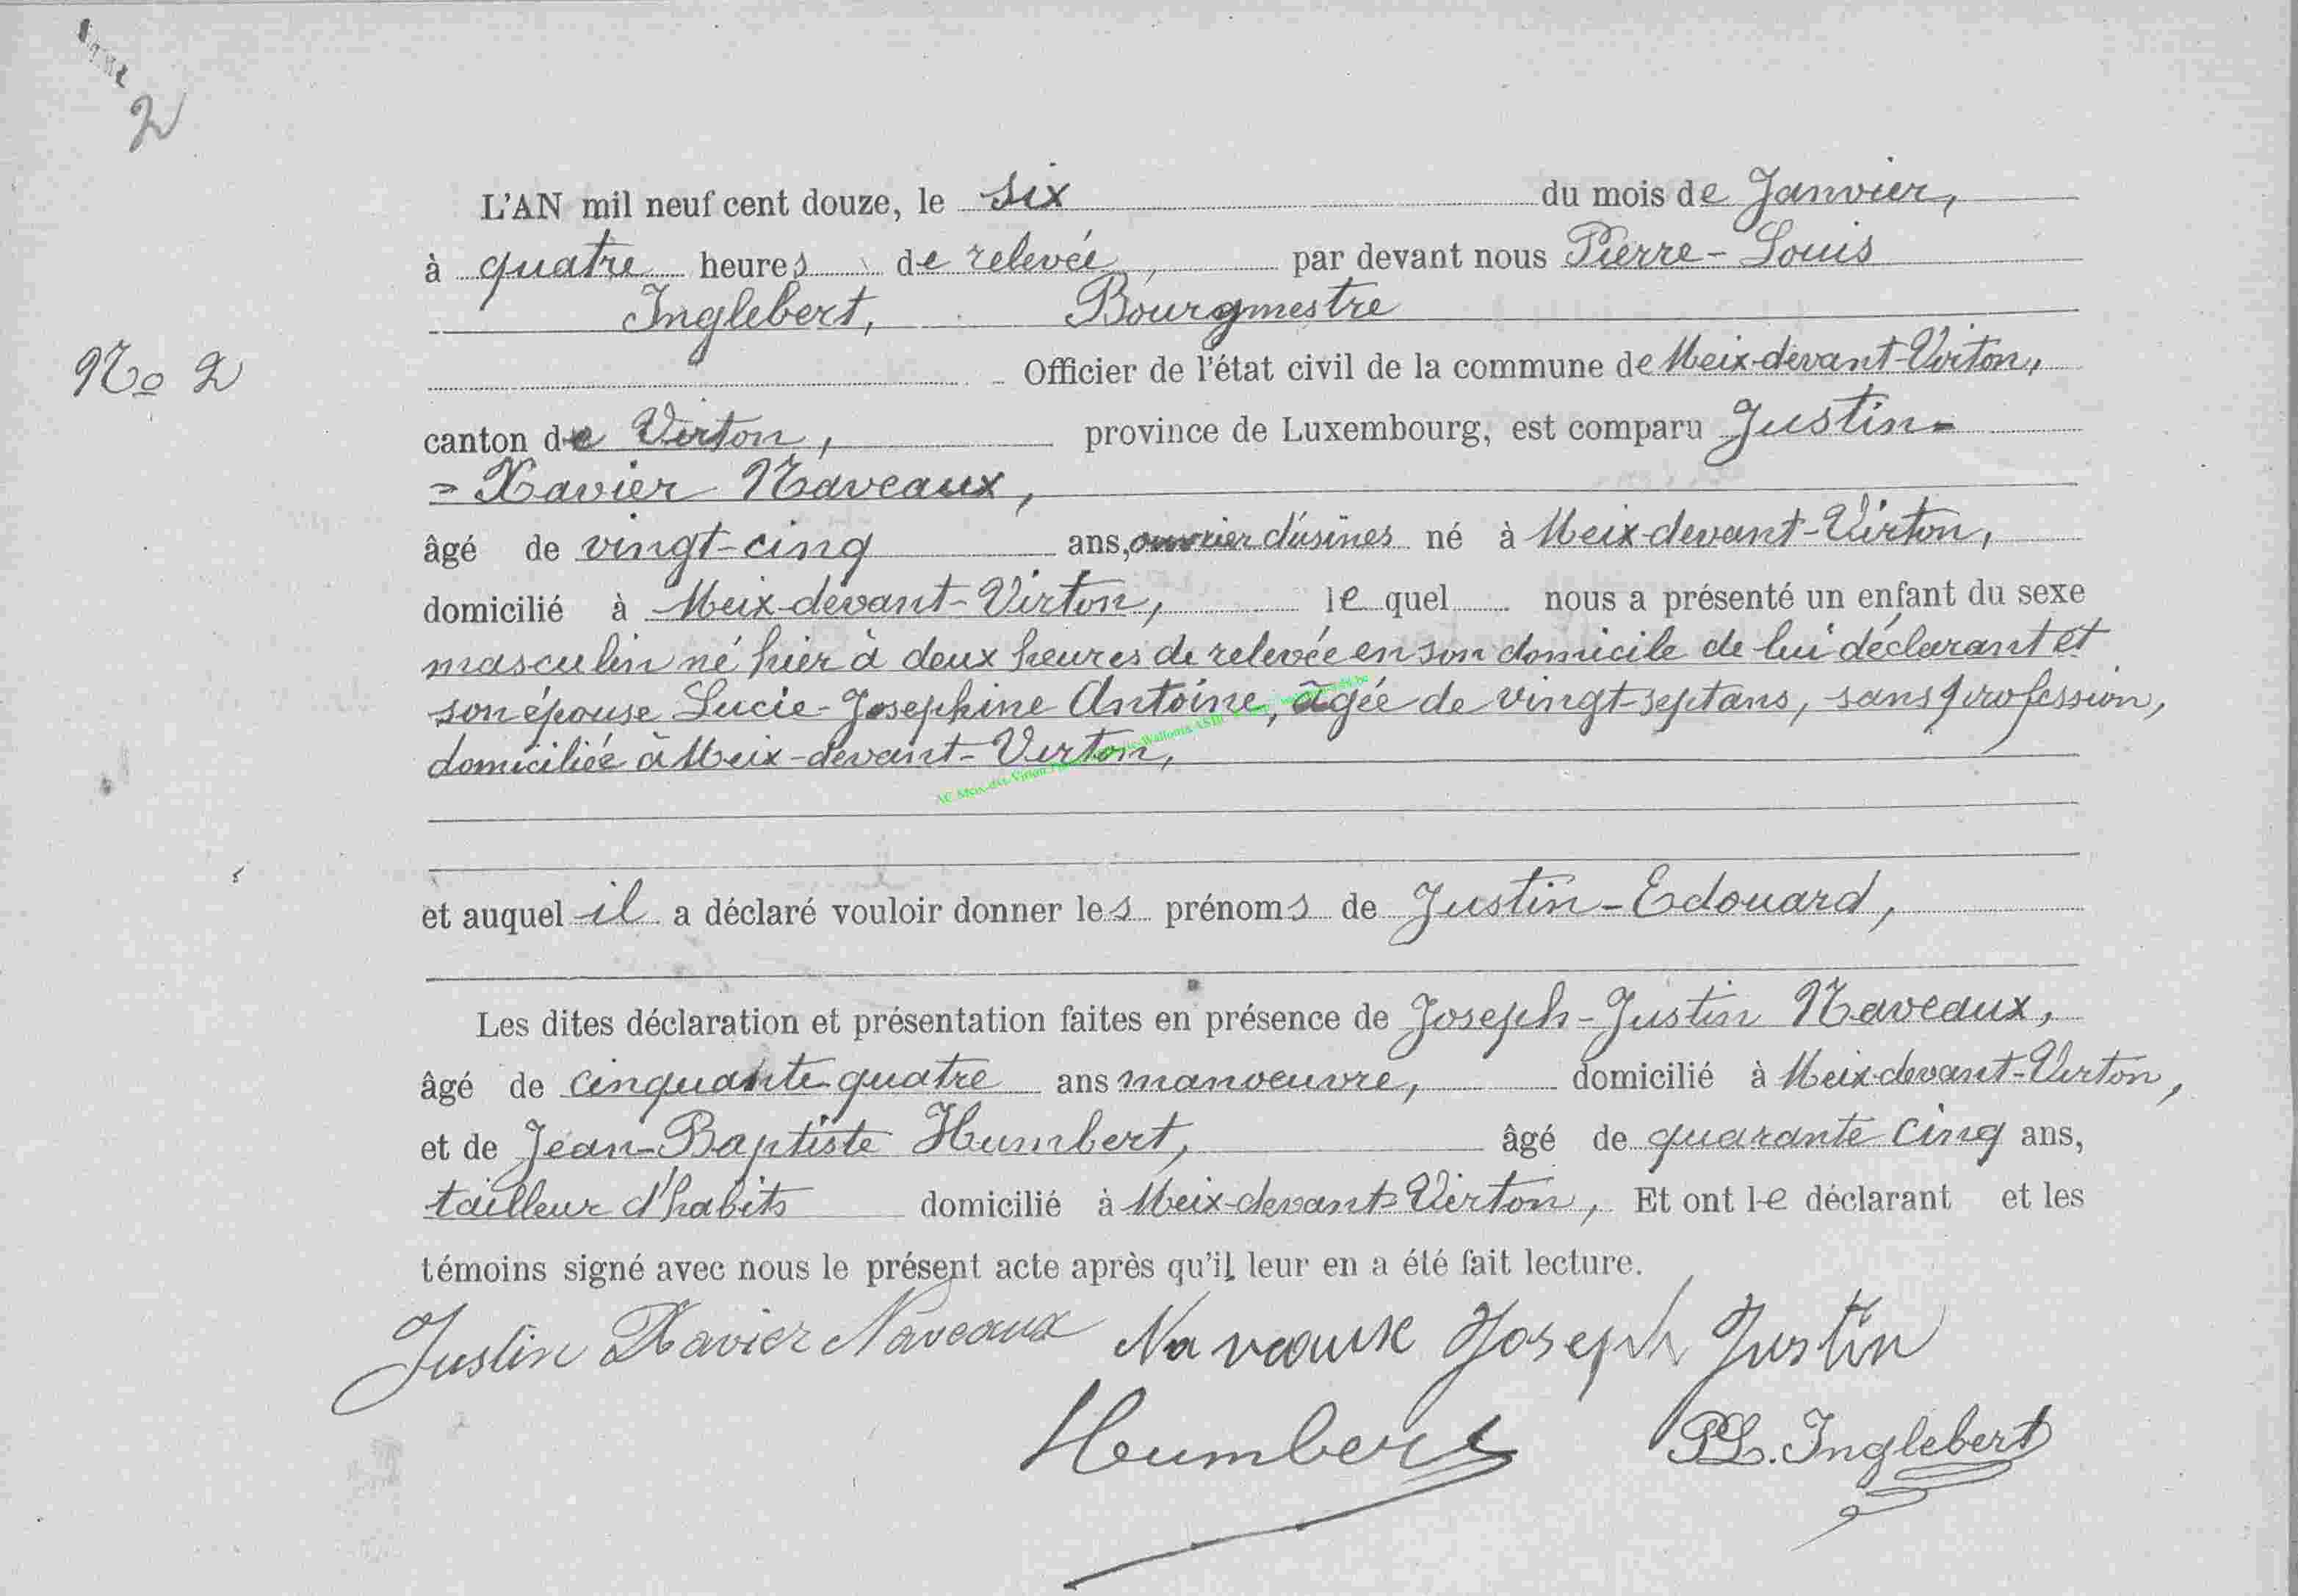 2
L'AN mil neuf cent douze, le six du mois de Janvier,
à quatre heures de relevée, par devant nous Pierre-Louis
Inglebert, Bourgmestre
No 2
Officier de l'état civil de la commune de Meix-devant-Virton,
canton de Virton, province de Luxembourg, est comparu Justin-
-Xavier Naveaux,
âgé de vingt-cinq ans, ouvrier d'usines né à Meix-devant-Virton,
domicilié à Meix-devant-Virton, lequel nous a présenté un enfant du sexe
masculin né hier à deux heures de relevée en son domicile de lui déclarant et
son épouse Lucie-Josephine Antoine, âgée de vingt-sept ans, sans profession,
domiciliée à Meix-devant-Virton,
et auquel il a déclaré vouloir donner les prénoms de Justin-Edouard,
Les dites déclaration et présentation faites en présence de Joseph-Justin Naveaux,
âgé de cinquante-quatre ans manoeuvre, domicilié à Meix-devant-Virton,
et de Jean-Baptiste Humbert, âgé de quarante cinq ans,
tailleur d'habits domicilié à Meix-devant-Virton, Et ont le déclarant et les
témoins signé avec nous le présent acte après qu'il leur en a été fait lecture.
Justin Xavier Naveaux Naveaux Joseph Justin
Humbert PL. Inglebert